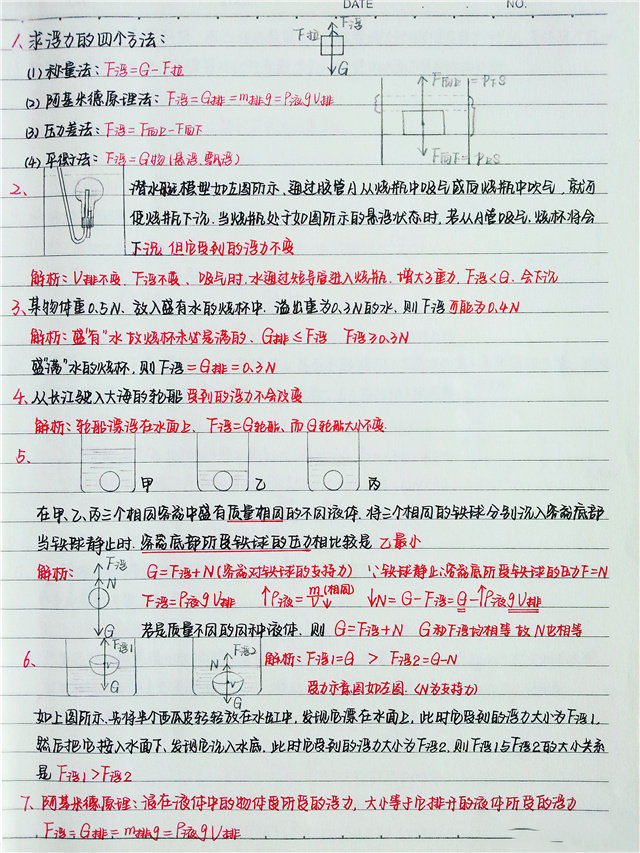 DATE . . NO.
1、求浮力的四个方法：
F浮
F拉
G
(1) 称量法：F浮=G-F拉
(2) 阿基米德原理法：F浮=G排=m排g=ρ液gV排
(3) 压力差法：F浮=F向上-F向下
(4) 平衡法：F浮=G物(悬浮、飘浮)
2、
潜水艇模型如左图所示、通过胶管A从烧瓶中吸气或向烧瓶中吹气，就可
使烧瓶下沉.当烧瓶处于如图所示的悬浮状态时.若从A管吸气.烧杯将会
下沉 但它受到的浮力不变
解析：V排不变、F浮不变、吸气时.水通过短导管进入烧瓶、增大了重力，F浮<G.会下沉
3、某物体重0.5N、放入盛有水的烧杯中.溢出重为0.3N的水、则F浮可能为0.4N
解析：盛"有"水 故烧杯未必是满的、G排≤F浮 F浮≥0.3N
盛"满"水的烧杯，则F浮=G排=0.3N
4、从长江驶入大海的轮船 受到的浮力不会改变
解析：轮船漂浮在水面上、F浮=G轮船、而G轮船大小不变.
5、
甲 乙 丙
在甲、乙、丙三个相同容器中盛有质量相同的不同液体.将三个相同的铁球分别沉入容器底部
当铁球静止时.容器底部所受铁球的压力相比较是 乙最小
解析： F浮 N G G=F浮+N(容器对铁球的支持力) ∵铁球静止∴容器底所受铁球的压力F=N
F浮=ρ液gV排 ↑ρ液=m(相同)/V↓ ↓N=G-F浮=G-↑ρ液gV排
若是质量不同的同种液体、则 G=F浮+N G和F浮均相等 故N也相等
6、
F浮1 G N F浮2 G
解析：F浮1=G > F浮2=G-N
受力示意图如左图.(N为支持力)
如上图所示.先将半个西瓜皮轻轻放在水缸中，发现它漂在水面上，此时它受到的浮力大小为F浮1.
然后把它按入水面下、发现它沉入水底.此时它受到的浮力大小为F浮2.则F浮1与F浮2的大小关系
是 F浮1>F浮2
7、阿基米德原理：浸在液体中的物体受所受的浮力，大小等于它排开的液体所受的浮力
F浮=G排=m排g=ρ液gV排